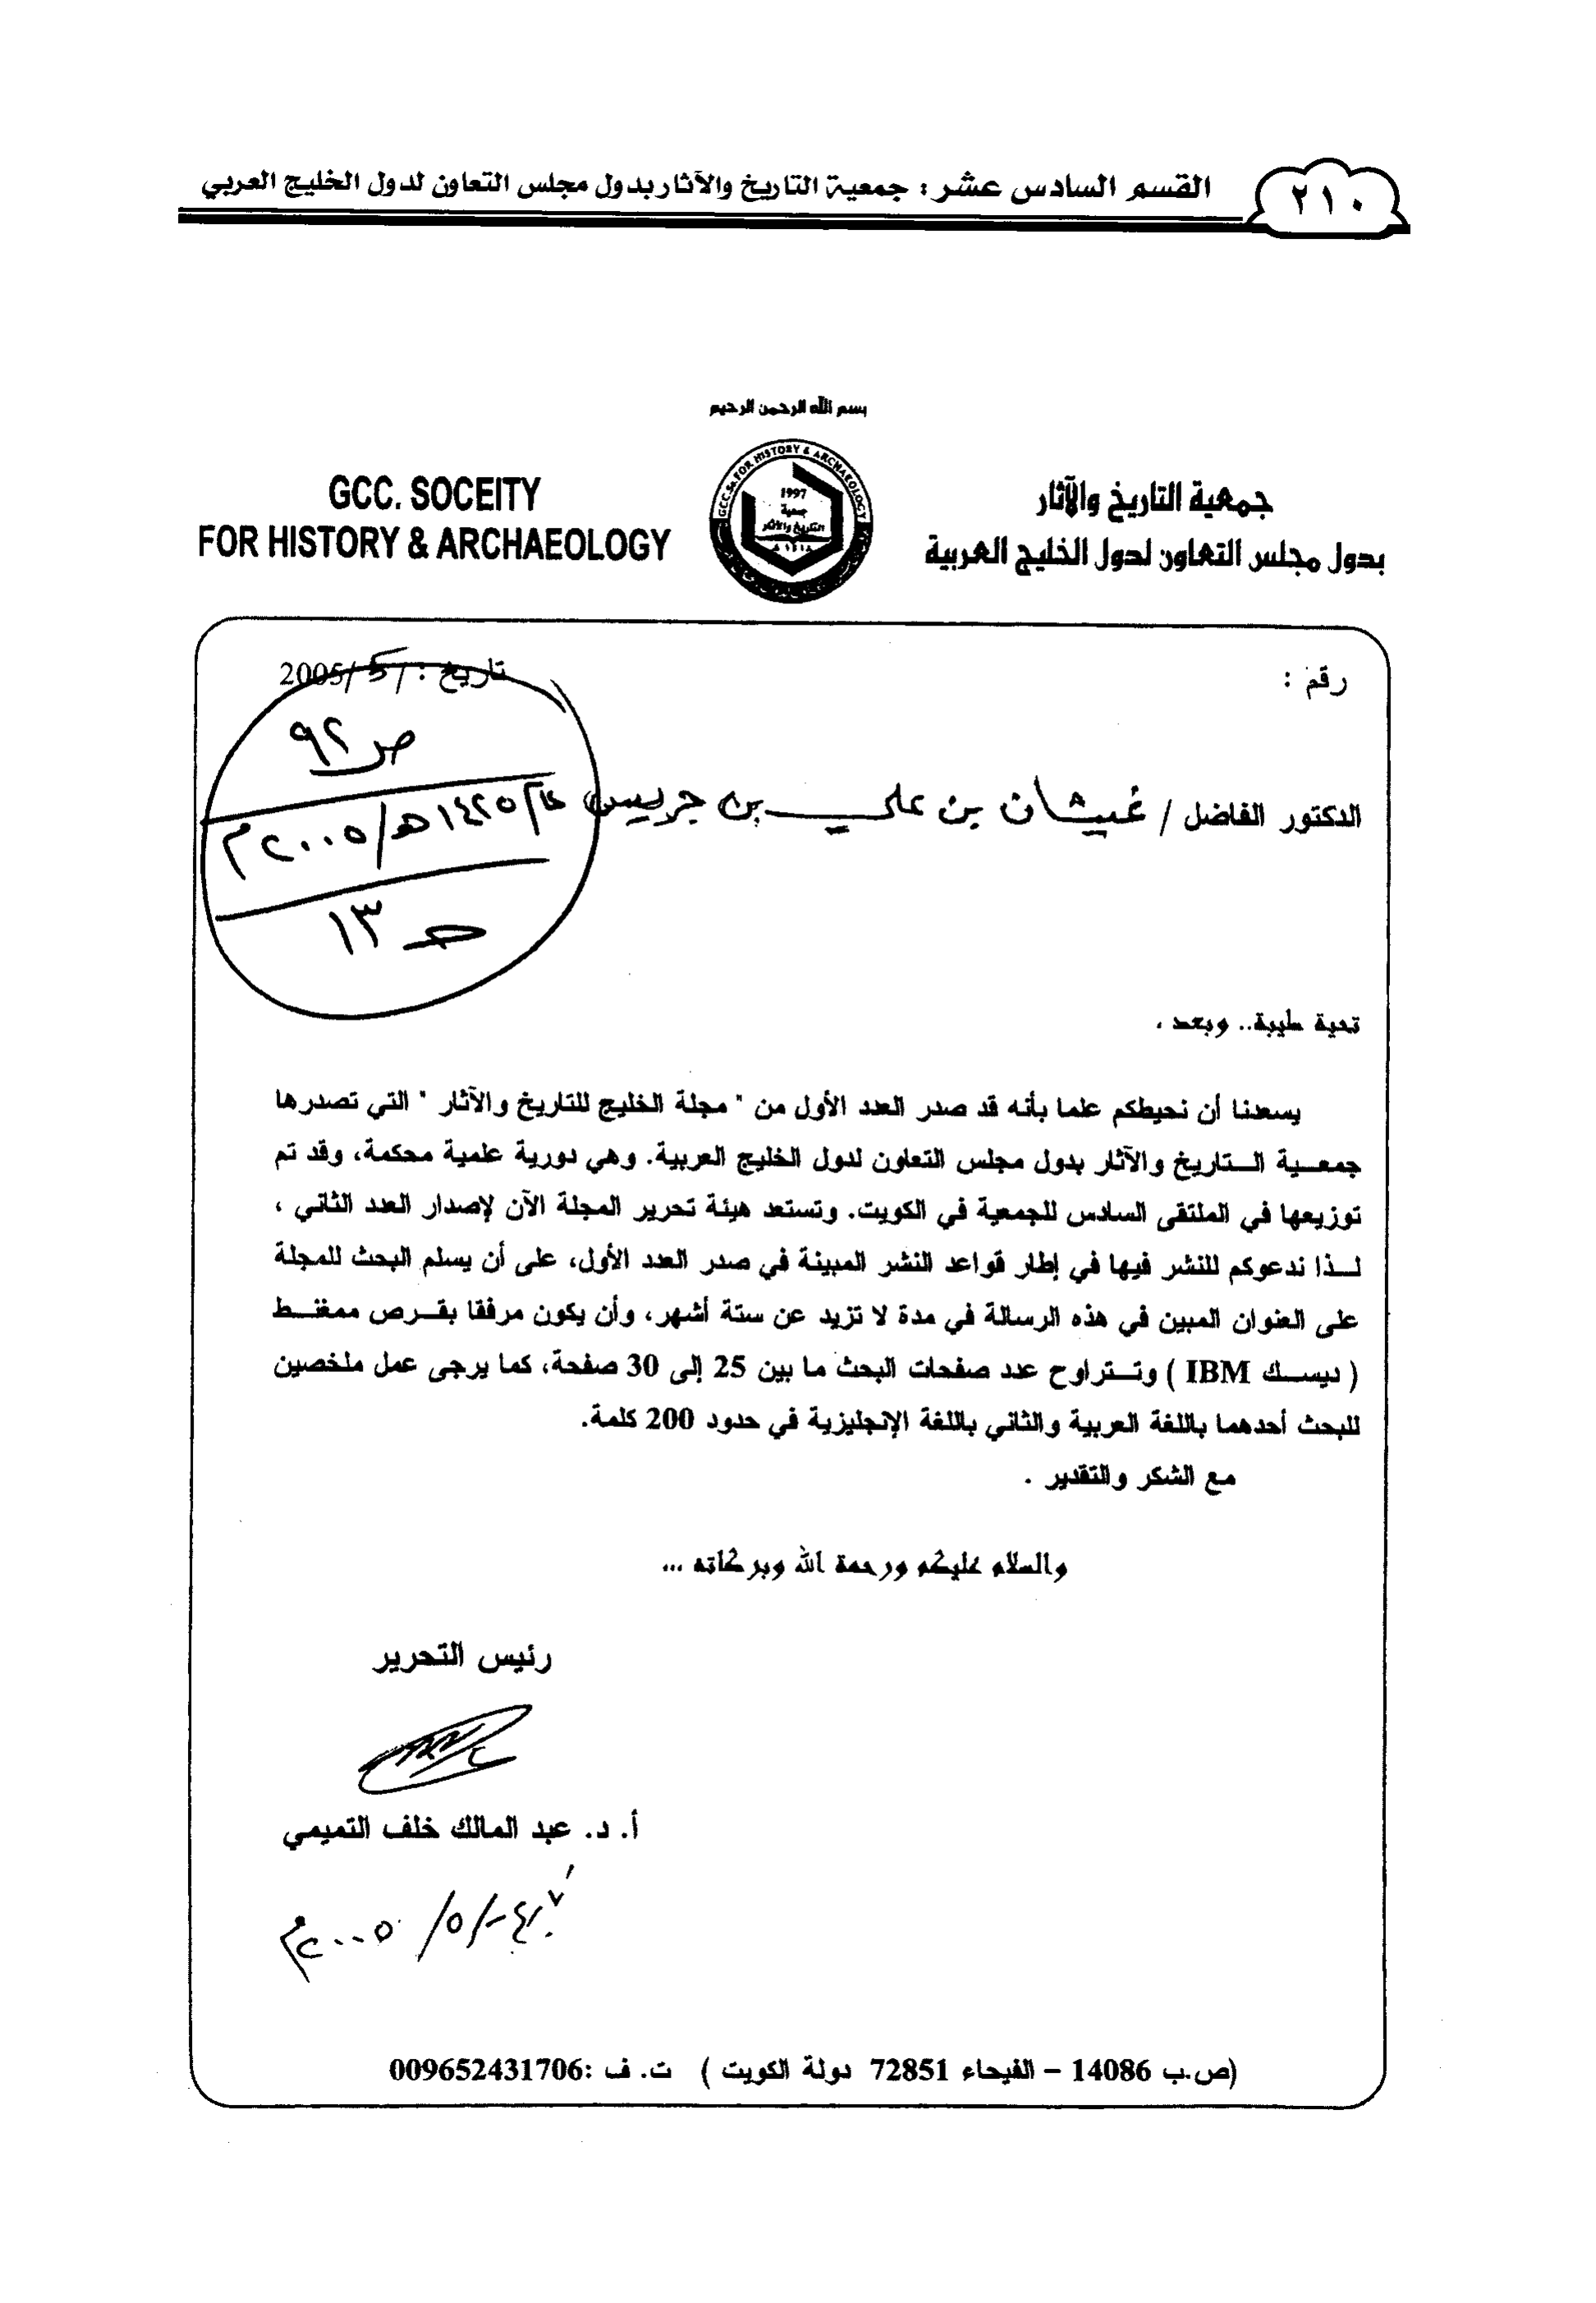 القسم السادس عشر : جمعية التاريخ والآثار بدول مجلس التعاون لدول الخليج العربي
٢١٠
بسم الله الرحمن الرحيم
جمعية التاريخ والآثار
بدول مجلس التعاون لدول الخليج العربية
GCC. SOCEITY
FOR HISTORY & ARCHAEOLOGY
GCC.S. FOR HISTORY & ARCHAEOLOGY
1997
جمعية
التاريخ والآثار
١٤١٨ هـ
رقم :
تاريخ : /5/2005
ص ٩٢
عام ١٤٢٥هـ/٢٠٠٥م
حـ ١٣
الدكتور الفاضل / غيثان بن علي بن جريس
تحية طيبة.. وبعد ،
يسعدنا أن نحيطكم علما بأنه قد صدر العدد الأول من " مجلة الخليج للتاريخ والآثار " التي تصدرها
جمعـية الـتاريخ والآثار بدول مجلس التعاون لدول الخليج العربية. وهي دورية علمية محكمة، وقد تم
توزيعها في الملتقى السادس للجمعية في الكويت. وتستعد هيئة تحرير المجلة الآن لإصدار العدد الثاني ،
لـذا ندعوكم للنشر فيها في إطار قواعد النشر المبينة في صدر العدد الأول، على أن يسلم البحث للمجلة
على العنوان المبين في هذه الرسالة في مدة لا تزيد عن ستة أشهر، وأن يكون مرفقا بقـرص ممغنـط
( ديسـك IBM ) وتـتراوح عدد صفحات البحث ما بين 25 إلى 30 صفحة، كما يرجى عمل ملخصين
للبحث أحدهما باللغة العربية والثاني باللغة الإنجليزية في حدود 200 كلمة.
مع الشكر والتقدير .
والسلام عليكم ورحمة الله وبركاته ...
رئيس التحرير
أ. د. عبد المالك خلف التميمي
/٥/ ٢٠٠٥م
(ص.ب 14086 – الفيحاء 72851 دولة الكويت ) ت. ف :009652431706